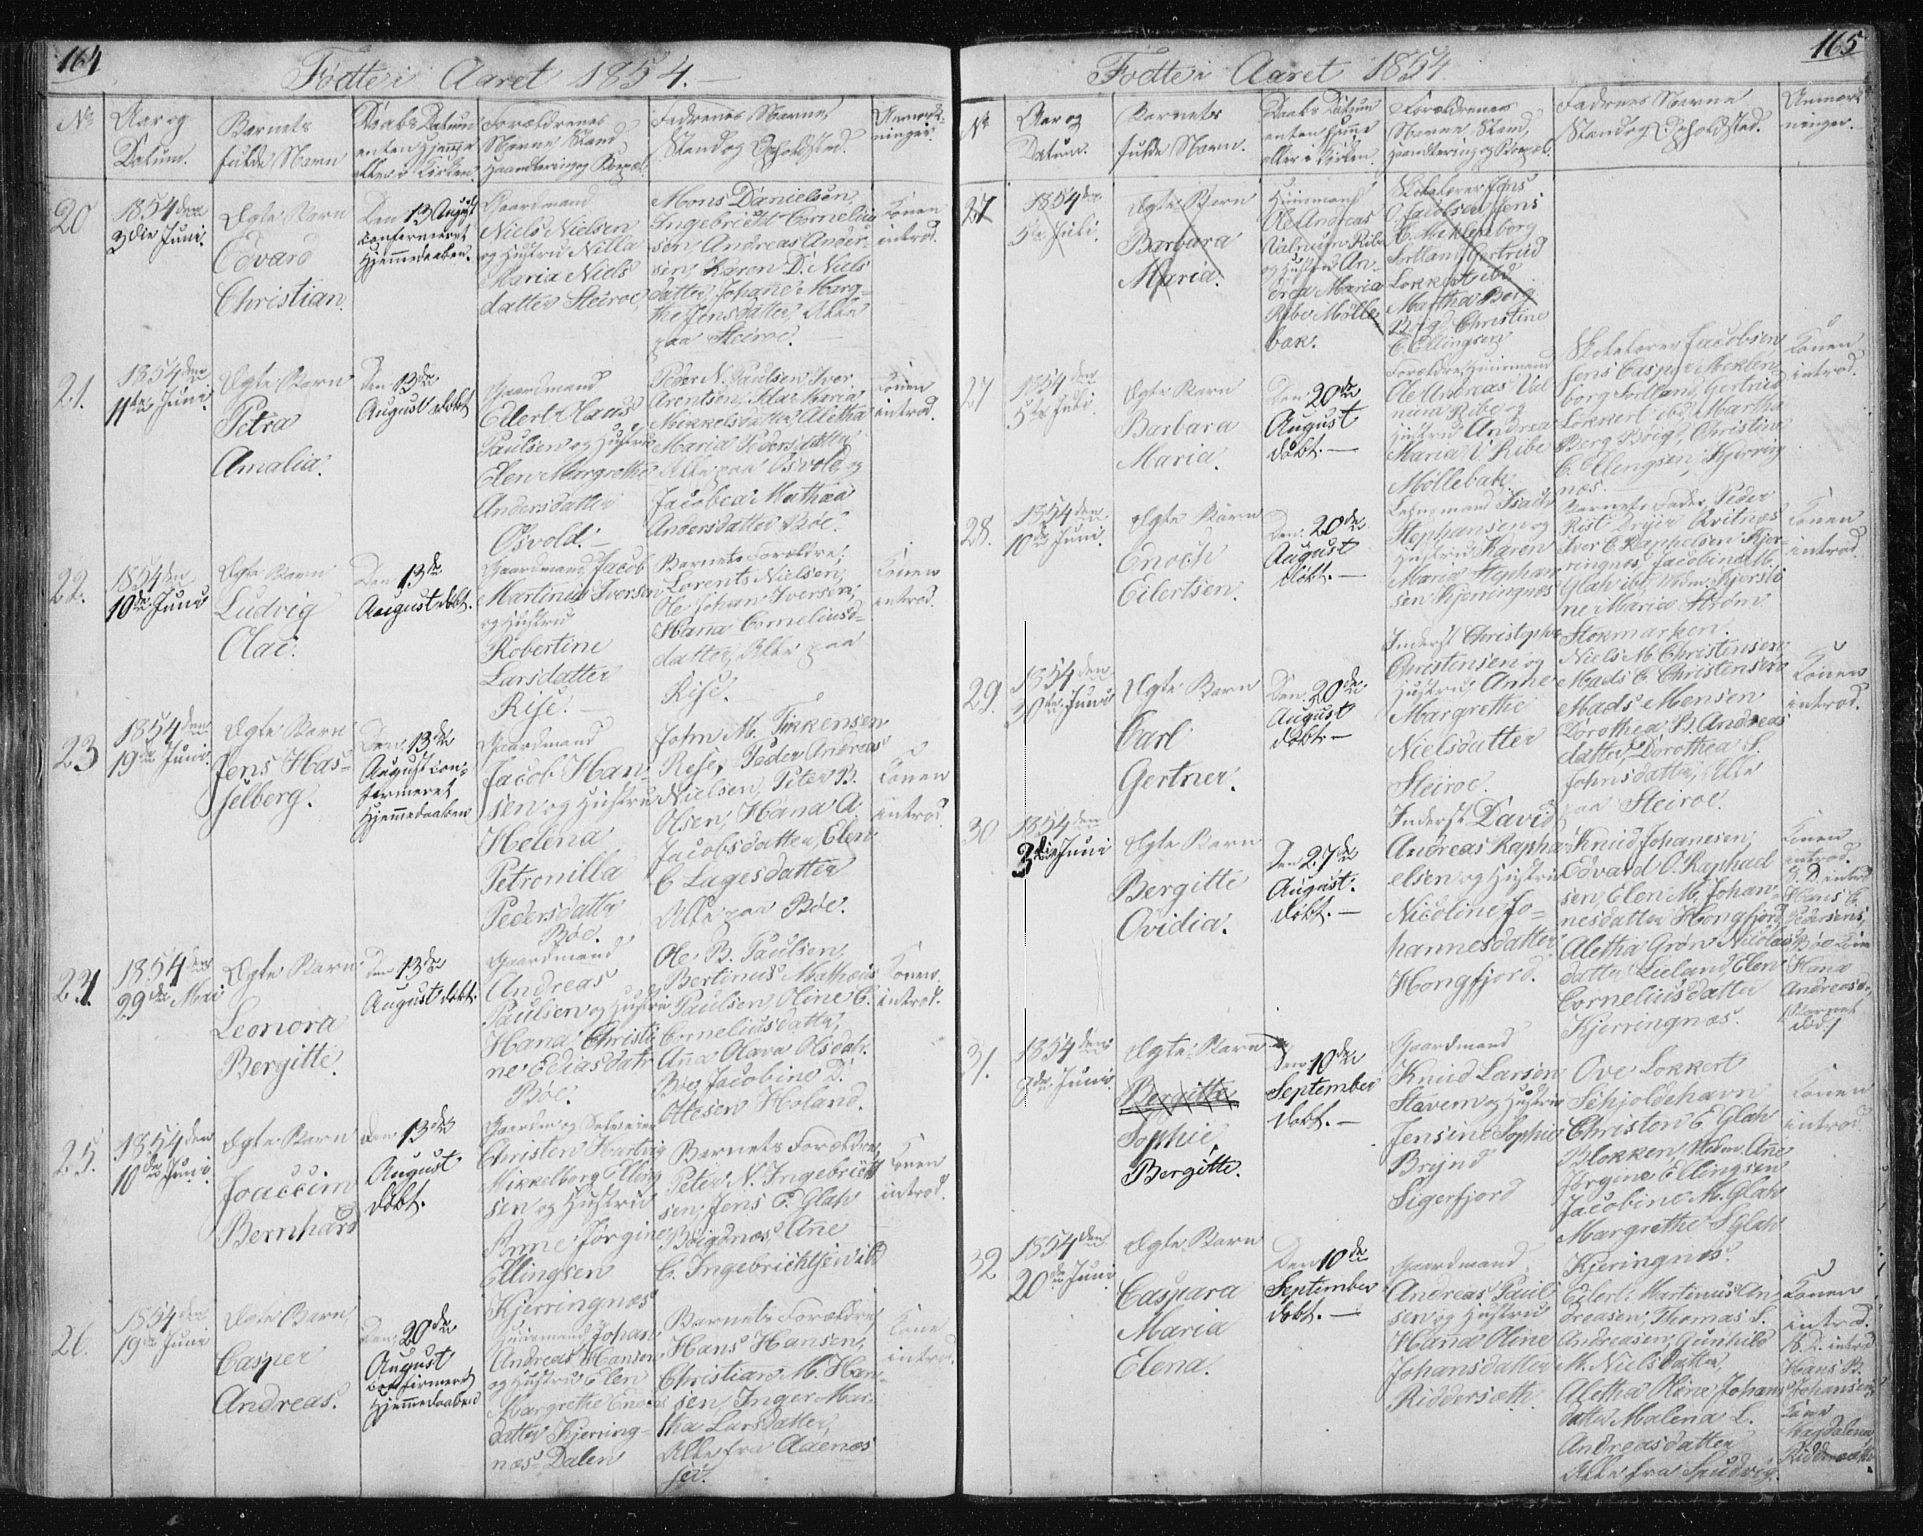 164
Fødte i Aaret 1854.—
No
Aar og
Datum.
Barnets
fulde Navn
Daabs Datum
enten hjemme
eller i Kirken.
Forældrenes
Navne Stand
Haandtering og Bopæl.
Fadrenes Navne
Stand og Opholdsted.
Anmærk-
ninger.
20
1854 den
3die Juni.
Ægte Barn
Edvard
Christian.
Den 13 August
confermeret
Hjemmedaaben.
Gaardmand
Niels Nielsen
og Hustru Nilla
Maria Niels
datter Steiroe
Mons Danielsen,
Ingebricht Cornelius
sen Andreas Ander-
sen, Karen D. Niels
datter, Johane Marg-
the Jensdatter, Alle
paa Steiroe.
Konen
introd.
21.
1854 den
11te Juni.
Ægte Barn
Petra
Amalia.
Den 13de
August døbt
Gaardmand
Eilert Haus
Paulsen og Hustru
Elen Margrethe
Andersdatter
Osvold.—
Peder N. Paulsen Iver
Arentsen, Ida Maria
Mikkelsdatter, Aletha
Maria Pedersdatter
Alle paa Osvold, og
Jacobea Mathea
Andersdatter Bøe.
Konen
introd.
22.
1854 den
10de Juni
Ægte Barn
Ludvig
Olai.
Den 13de
August døbt.
Gaardmand Jacob
Martinus Iversen
og Hustru
Robertine
Larsdatter
Rise.—
Barnets Forældre,
Lorents Nielsen,
Ole Johan Iversen,
Hana Cornelius-
datter, Alle paa
Rise.
Konen
introd.
23
1854 den
19de Juni.
Ægte Barn
Jens Has-
selberg.
Den 13de
August con-
fermeret
Hjemmedaaben
Gaardmand
Jacob Han-
sen og Hustru
Helena
Petronilla
Pedersdatter
Bøe.
John M. Tørkensen
Rese, Peder Andreas
Nielsen, Peter B.
Olsen, Hana A.
Jacobsdatter, Elen
C Lagesdatter
Alle paa Bøe.
Konen
introd.
24.
1854 den
29de Mai
Ægte Barn
Leonora
Bergitte.
Den 13de
August døbt.
Gaardmand
Andreas
Paulsen og Hustru
Hana Christi
ne Ediasdatr
Bøe.
Ole B. Paulsen,
Bertinus Mathæus
Paulsen, Oline C.
Corneliusdatter,
Ana Olava Olsdatr.
Bøe, Jacobine D.
Ottesen Holand.
Konen
introd.
25.
1854 den
10de Juni.
Ægte Barn
Joaccim
Bernhard
Den 13de
August
døbt.
Gaarden og Selveier
Christen Hartvig
Mikkelborg Elling
sen og Hustru
Anne Jørgine
Ellingsen
Kjerringnæs
Barnets Forældre,
Peter N. Ingebricht
sen, Jens F. Glah
Bøignæs, Ane
C. Ingebrichtsen ibd
Konen
introd.
26.
1854 den
19de Juni
Ægte Barn
Casper
Andreas.
Den 20de
August
confirmeret
Hjemmedaaben
Huusmand Johan
Andreas Hansen
og Hustru Elen
Margrethe Enoks
datter Kjerring-
næs Dalen
Barnets Forældre,
Hans Hansen,
Christian M. Han-
sen, Inger Mar-
tha Larsdatter,
Alle fra Aaenæs
Kone
introd.
165
Fødte i Aaret 1854.
No
Aar og
Datum.
Barnets
fulde Navn.
Daabs Datum
enten hjemme
eller i Kirken.
Forældrenes
Navne, Stand,
Haandtering og Bopæl.
Fadrenes Navne
Stand og Opholdsted.
Anmærk
ninger.
27
1854 den
5te Juli.
Ægte Barn
Barbara
Maria.
Huusmand
Ole Andreas
Valnum Ribe
og Hustru An-
drea Maria
Ribe Mølle-
bak.
Skolelærer Jens
O. Jacobsen, Jens
C. Meklenborg
Sortland, Gertrud
Lokkert ibd
Martha Berg
Bøig, Christine
C. Ellingsen
27
1854 den
5te Juli.
Ægte Barn
Barbara
Maria.
Den 20de
August
døbt.—
Forældre, Huusmand
Ole Andreas Val
num Ribe og
Hustru Andrea
Maria C. Ribe
Møllebak.
Skolelærer Jacobsen,
Jens Casper Meklen-
borg Sortland, Gertrud
Lokkert ibd, Martha
Berg Bøig, Christine
C. Elengsen, Kjerring
næs.
Konen
introd.
28.
1854 den
10de Juni.
Ægte Barn
Enoch
Eilertsen.
Den 20de
August
døbt.—
Lehnsmand Isach
Stephansen og
Hustru Karen
Maria Stephan
sen Kjerringnæs
Barnets Fader, Peder
Risti Dreier Kvitnæs
Iver C Raphelsen Kjer
ringnæs, Jacobina M.
Glah ibd, Mdm. Kjersti
ne Maria Strøm
Stokmarken.
Konen
introd.
29.
1854 den
30te Juni
Ægte Barn
Carl
Gertner.
Den 20de
August
døbt.—
Inderst Christopher
Christensen og
Hustru Anne
Margrethe
Nielsdatter
Steiroe.
Niels M. Christensen
Mads C. Christensen
Mads Mensen
Dorothea B. Andreas
datter, Dorothea S.
Johnsdatter, Alle
paa Steiroe.
Konen
introd.
30
1854 den
3die Juni
Ægte Barn
Bergitte
Ovidia.
Den 27de
August.
døbt.—
Inderst David
Andreas Rapha
elsen og Hustru
Nicoline Jo-
hannesdatter
Hongfjord.
Knud Johanesen,
Edvard O. Raphael
sen, Elen M. Johan-
nesdatter Hongfjord
Aletha Grøn Nicolai
datter Lieland, Elen
Corneliusdatter
Kjerringnæs.
Konen
introd.
S. D. introd
Hans C.
Pedersens
Bøe Kone
Hana
Andreasd.,
Barnet
død
31.
1854 den
8de Juni.
Ægte Barn
Bergitte
Sophie.
Bergitte.
Den 10de
September
døbt.—
Gaardmand
Knud Larsen
Stavem og Hustru
Jensine Sophie
Brynd
Sigerfjord
Ove Lokkert
Schjoldehavn
Christen E Glah
Blokken, Mdm. Ane
Jørgine Ellingsen
Jacobine M. Glah
Margrethe S Glah
Kjeringnæs
Konen
introd.
32
1854 den
20de Juni
Ægte Barn
Caspara
Maria
Elena.
Den 10de
September
døbt.—
Gaardmand
Andreas Paul
sen og Hustru
Hana Oline
Johansdatter
Riddersæth.
Eilert Martinus An-
dreasen, Thomas S.
Andreasen, Gunhild
M. Nielsdatter,
Aletha Oline Johans
datter Malena L.
Andreasdatter
Alle fra Spudvig.
Konen
introd.
S. D. introd
Hans P.
Johansens
Kone
Magdalena
Riddersæth.